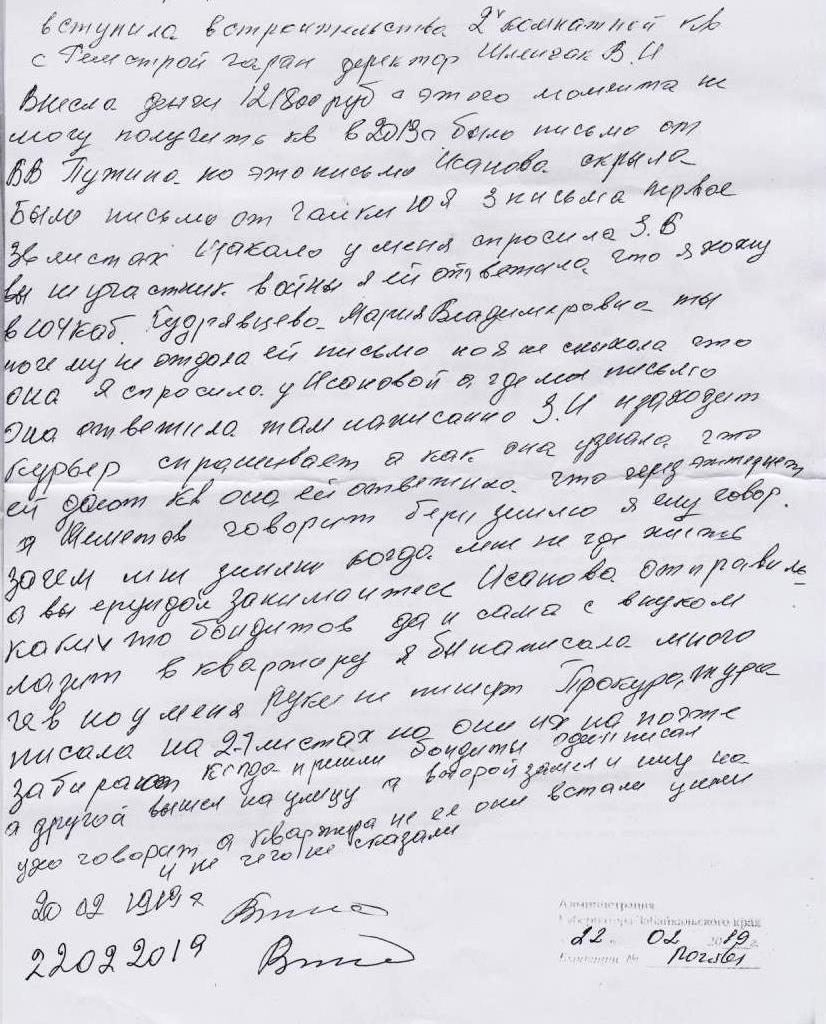 вступила в строительства 2х комнатной кв
с Гемстрой гаран директор Шленчак В.И
Внесла деньги 121800 руб с этого момента не
могу получить кв в 2013г было письмо от
ВВ Путина но это письмо Исакова скрыла
Было письмо от Чайки ЮЯ 3 письма первое
3х листах у меня спросила З.В
вы участник войны я ей ответила что я хожу
в 104 каб. Кудрявцева Мария Владимировна ты
почему не отдала ей письмо но я не слыхала что
она я спросила у Исаковой а где мы письмо
она ответила там написанно З.И приходит
курьер спрашивает а как она узнала что
ей дают кв она ей ответила что через
я говорит бери землю я ему говор.
зачем мне земли когда мне не где жить
а вы ерундой заниматесь Исакова отправила
каких то бондитов да и сама с внуком
лазит в квартиру я бы написала много
чев но у меня руки не пишут Прокура, жура
писала на 27 листах но они их на почте
забирают когда пришли бондиты один писал
а другой вышел на улицу а второй зашел и ему на
ухо говорит а квартира не ее они встали ушли
и не чего не сказали
20 02 1919г
22 02 2019
Администрация
Губернатора Забайкальского края
22 02 2019 г.